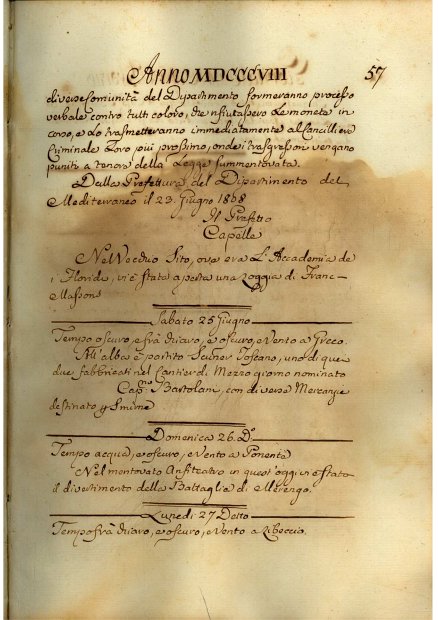 Anno MDCCCVIII
57
diverse Comunità del Dipartimento formeranno processo
verbale contro tutti coloro, che rifiutassero le monete in
corso, e lo trasmetteranno immediatamente al Cancilliere
Criminale loro più prossimo, onde i trasgressori vengano
puniti a tenore della Legge summentovata.
Dalla Prefettura del Dipartimento del
Mediterraneo il 23. Giugno 1808
Il Prefetto
Capelle
Nel Vecchio Sito, ova era L'Accademia de
i Floridi, vi è stata aperta una Loggia di Franc=
Massons
Sabato 25 Giugno
Tempo oscuro, e frà chiaro, e oscuro, e Vento a Greco.
All'alba è partito Scuner Toscano, uno di que
due fabbricati nel Cantier di Mezzo giorno nominato
Cap.no Bartolani, con diverse Mercanzie
destinato p Smirne
Domenica 26. D.o
Tempo acqua, e oscuro, e Vento a Ponente
Nel mentovato Anfiteatro in quest'oggi vi è stato
il divertimento della Battaglia di Merengo.
Lunedi 27 Detto
Tempo frà chiaro, e oscuro, e Vento a Libeccio.